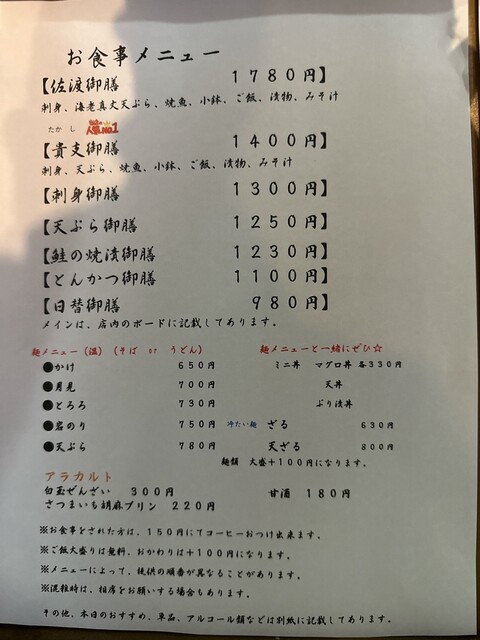 お食事メニュー
【佐渡御膳 1780円】
刺身、海老真丈天ぷら、焼魚、小鉢、ご飯、漬物、みそ汁
たかし 人気No.1
【貴支御膳 1400円】
刺身、天ぷら、焼魚、小鉢、ご飯、漬物、みそ汁
【刺身御膳 1300円】
【天ぷら御膳 1250円】
【鮭の焼漬御膳 1230円】
【とんかつ御膳 1100円】
【日替御膳 980円】
メインは、店内のボードに記載してあります。
麺メニュー（温）（そば or うどん） 麺メニューと一緒にぜひ☆
●かけ 650円 ミニ丼 マグロ丼 各330円
●月見 700円 天丼
●とろろ 730円 ぶり漬丼
●岩のり 750円 冷たい麺 ざる 630円
●天ぷら 780円 天ざる 800円
麺類 大盛＋100円になります。
アラカルト
白玉ぜんざい 300円 甘酒 180円
さつまいも胡麻プリン 220円
※お食事をされた方は、150円にてコーヒーおつけ出来ます。
※ご飯大盛りは無料、おかわりは＋100円になります。
※メニューによって、提供の順番が異なることがあります。
※混雑時は、相席をお願いする場合もあります。
その他、本日のおすすめ、単品、アルコール類などは別紙に記載してあります。